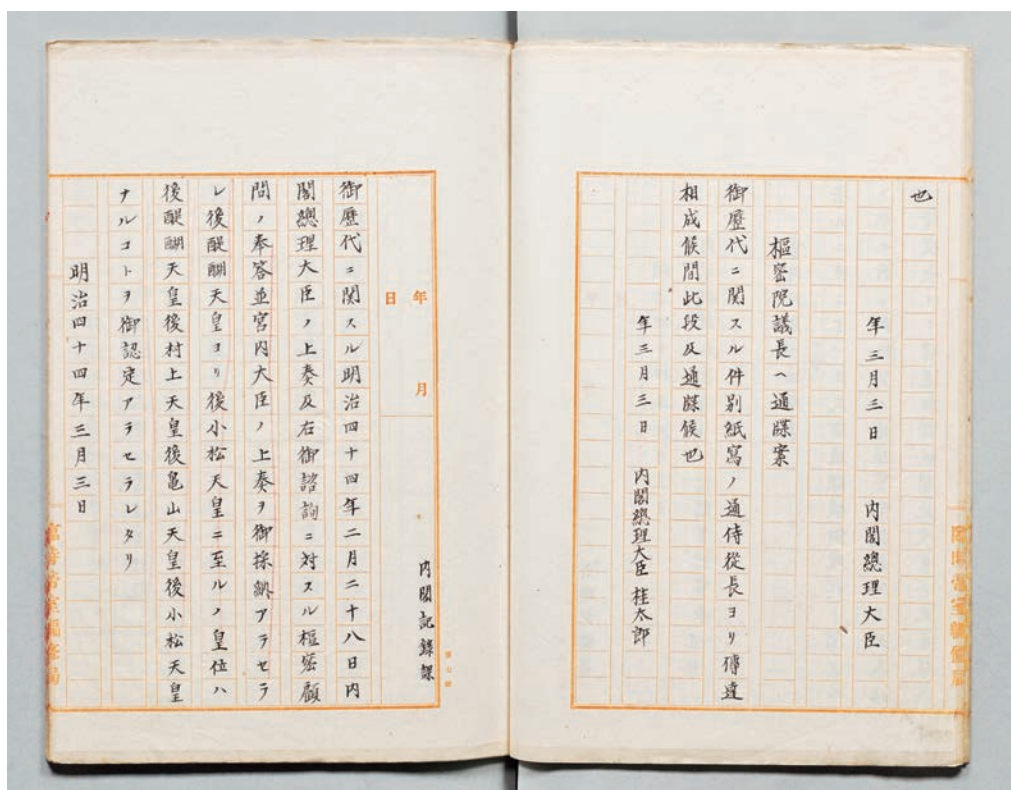 也
年三月三日 内閣總理大臣
樞密院議長ヘ通牒案
御歴代ニ関スル件別紙寫ノ通侍従長ヨリ傳達
相成候間此段及通牒候也
年三月三日 内閣總理大臣 桂太郎
年 月 日
内閣記録課
御歴代ニ関スル明治四十四年二月二十八日内
閣總理大臣ノ上奏及右御諮詢ニ対スル樞密顧
問ノ奉答並宮内大臣ノ上奏ヲ御採納アラセラ
レ後醍醐天皇ヨリ後小松天皇ニ至ルノ皇位ハ
後醍醐天皇後村上天皇後亀山天皇後小松天皇
ナルコトヲ御認定アラセラレタリ
明治四十四年三月三日